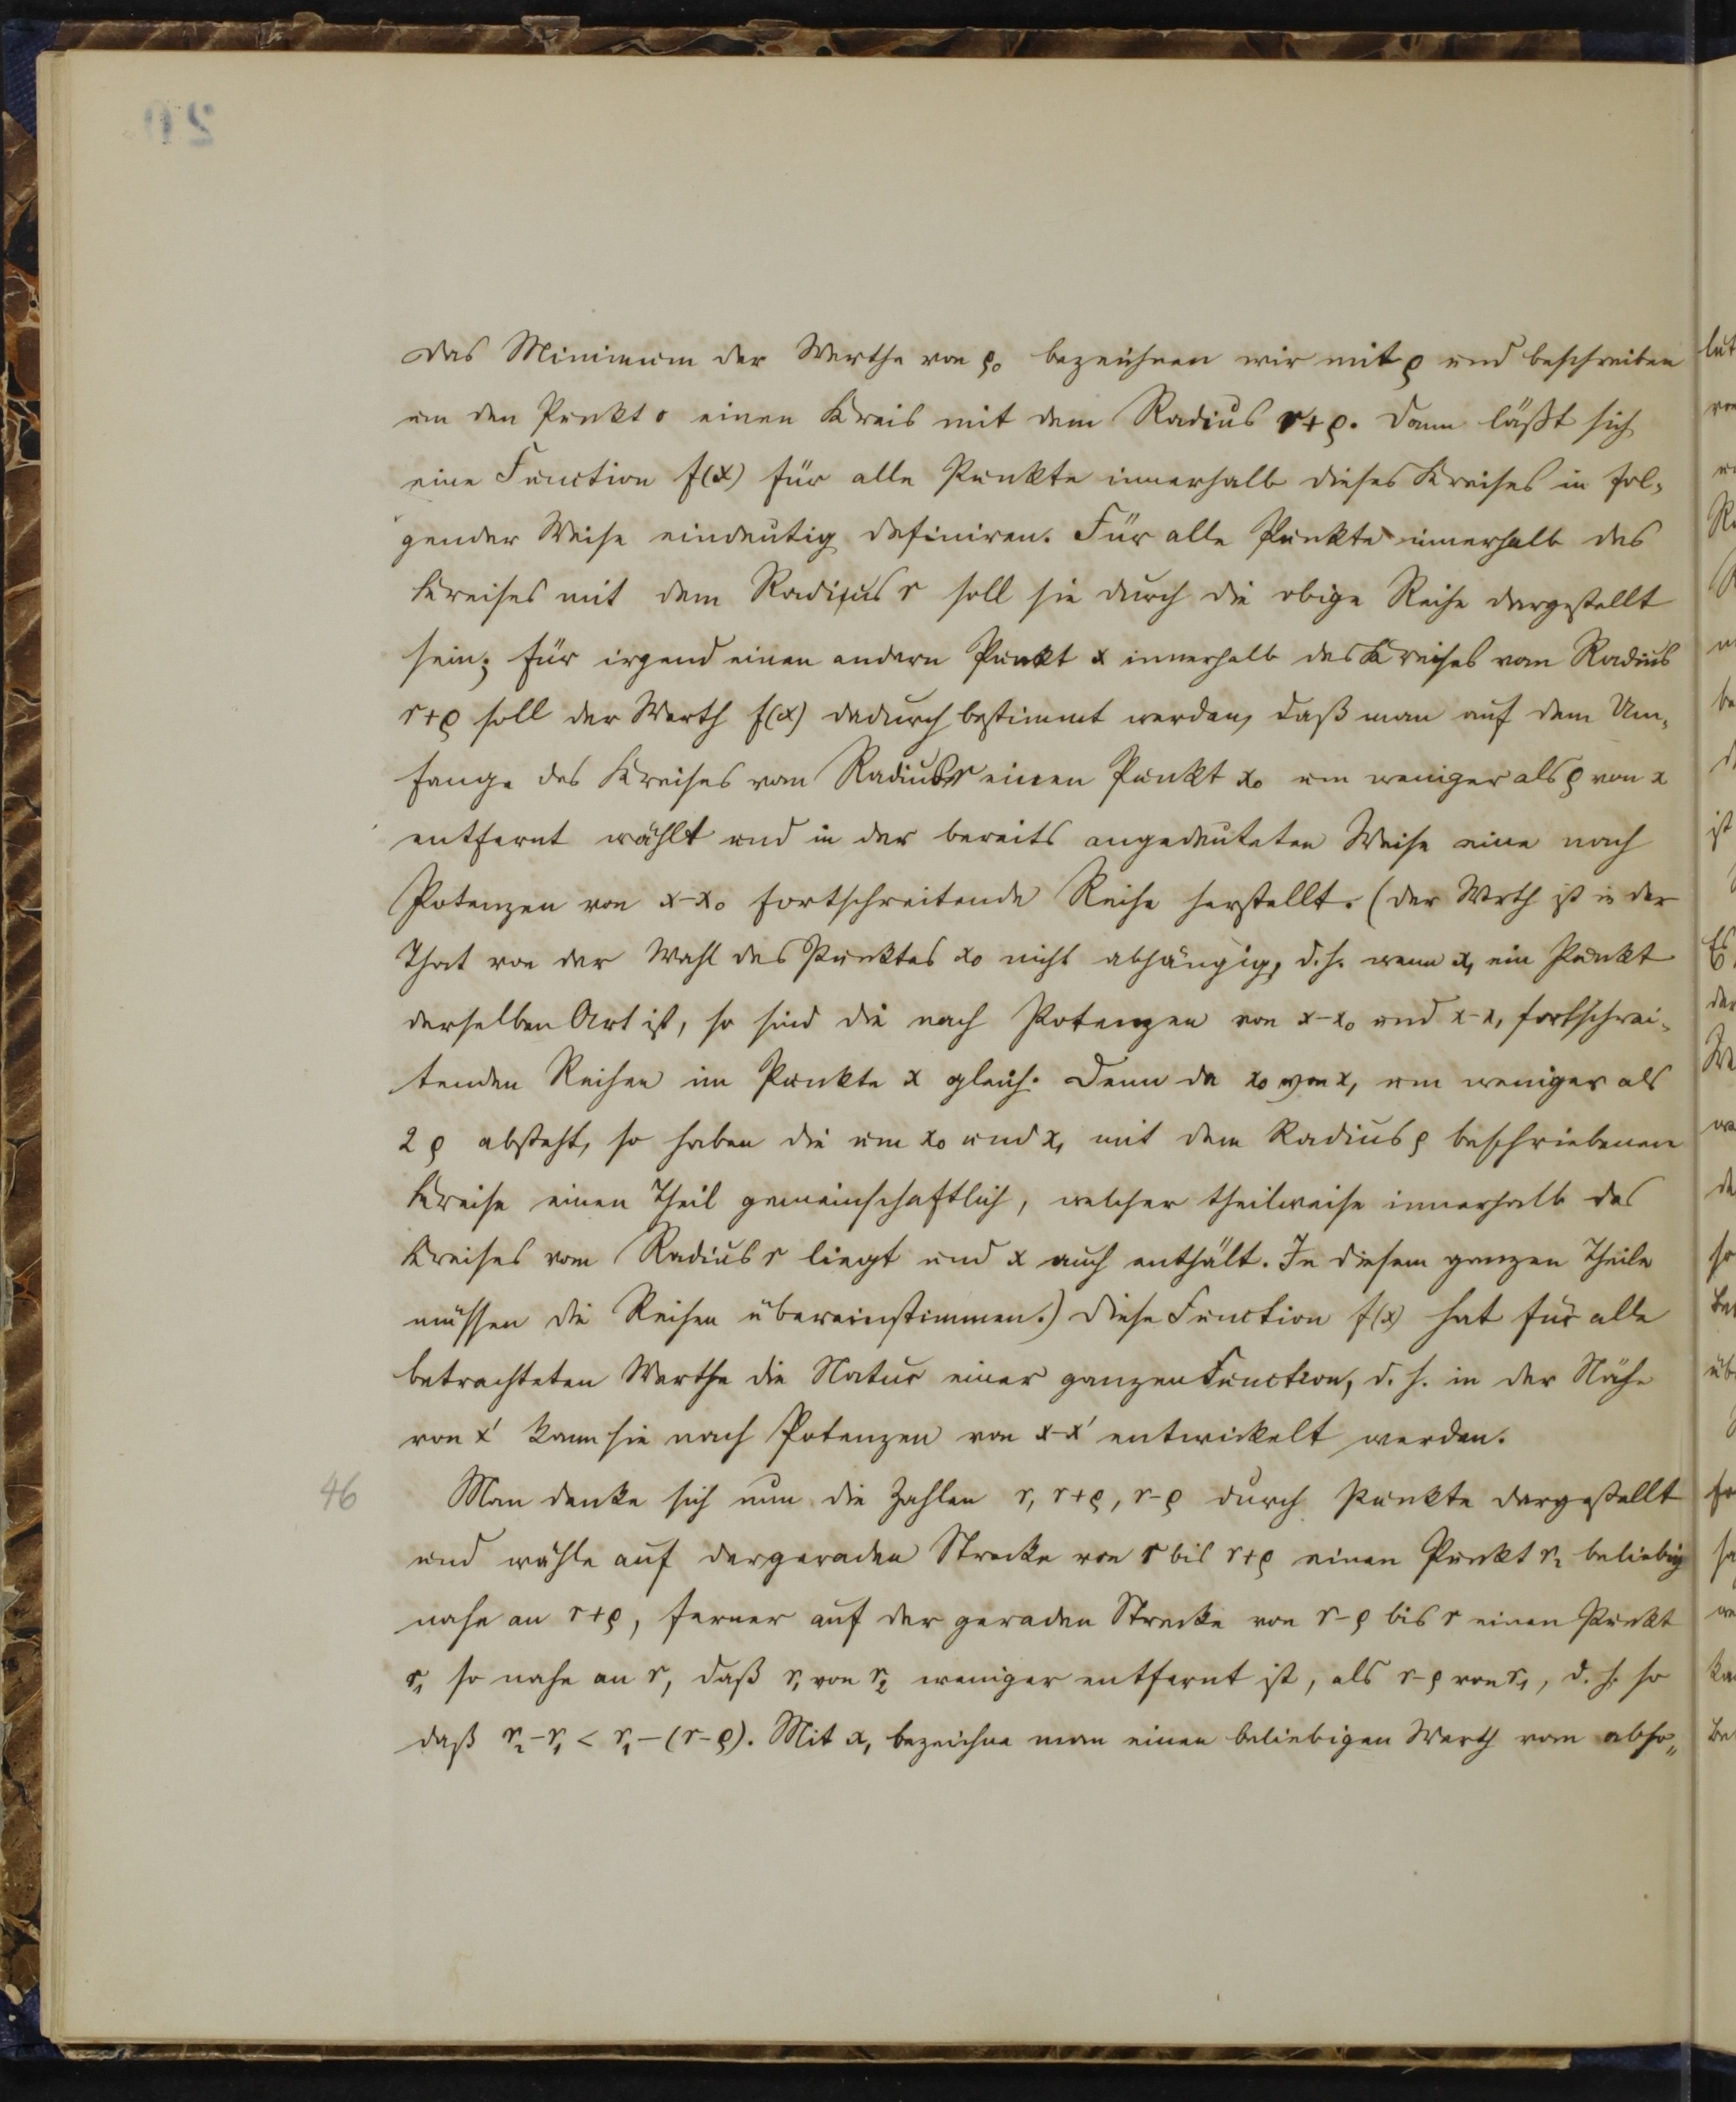 Das Minimum der Werthe von ρ₀ bezeichnen wir mit ρ und beschreiben
um den Punkt 0 einen Kreis mit dem Radius r+ρ. Dann läßt sich
eine Function f(x) für alle Punkte innerhalb dieses Kreises in fol-
gender Weise eindeutig definiren. Für alle Punkte innerhalb des
Kreises mit dem Radius r soll sie durch die obige Reihe dargestellt
sein; für irgend einen andern Punkt x innerhalb des Kreises vom Radius
r+ρ soll der Werth f(x) dadurch bestimmt werden, daß man auf dem Um-
fange des Kreises vom Radius r einen Punkt x₀ um weniger als ρ von x
entfernt wählt und in der bereits angedeuteten Weise eine nach
Potenzen von x-x₀ fortschreitende Reihe herstellt. (Der Werth ist in der
That von der Wahl des Punktes x₀ nicht abhängig, d.h. wenn x₁ ein Punkt
derselben Art ist, so sind die nach Potenzen von x-x₀ und x-x₁ fortschrei-
tenden Reihen im Punkte x gleich. Denn da x₀ von x₁ um weniger als
2ρ absteht, so haben die um x₀ und x₁ mit dem Radius ρ beschriebenen
Kreise einen Theil gemeinschaftlich, welcher theilweise innerhalb des
Kreises vom Radius r liegt und x auch enthält. In diesem ganzen Theile
müssen die Reihen übereinstimmen.) Diese Function f(x) hat für alle
betrachteten Werthe die Natur einer ganzen Function, d. h. in der Nähe
von x' kann sie nach Potenzen von x-x' entwickelt werden.
46 Man denke sich nun die Zahlen r, r+ρ, r-ρ durch Punkte dargestellt
und wähle auf der geraden Strecke von r bis r+ρ einen Punkt r₂ beliebig
nahe an r+ρ, ferner auf der geraden Strecke von r-ρ bis r einen Punkt
r₁ so nahe an r, daß r₁ von r₂ weniger entfernt ist, als r-ρ von r₁, d. h. so
daß r₂-r₁ < r₁-(r-ρ). Mit x₁ bezeichne man einen beliebigen Werth vom abso-